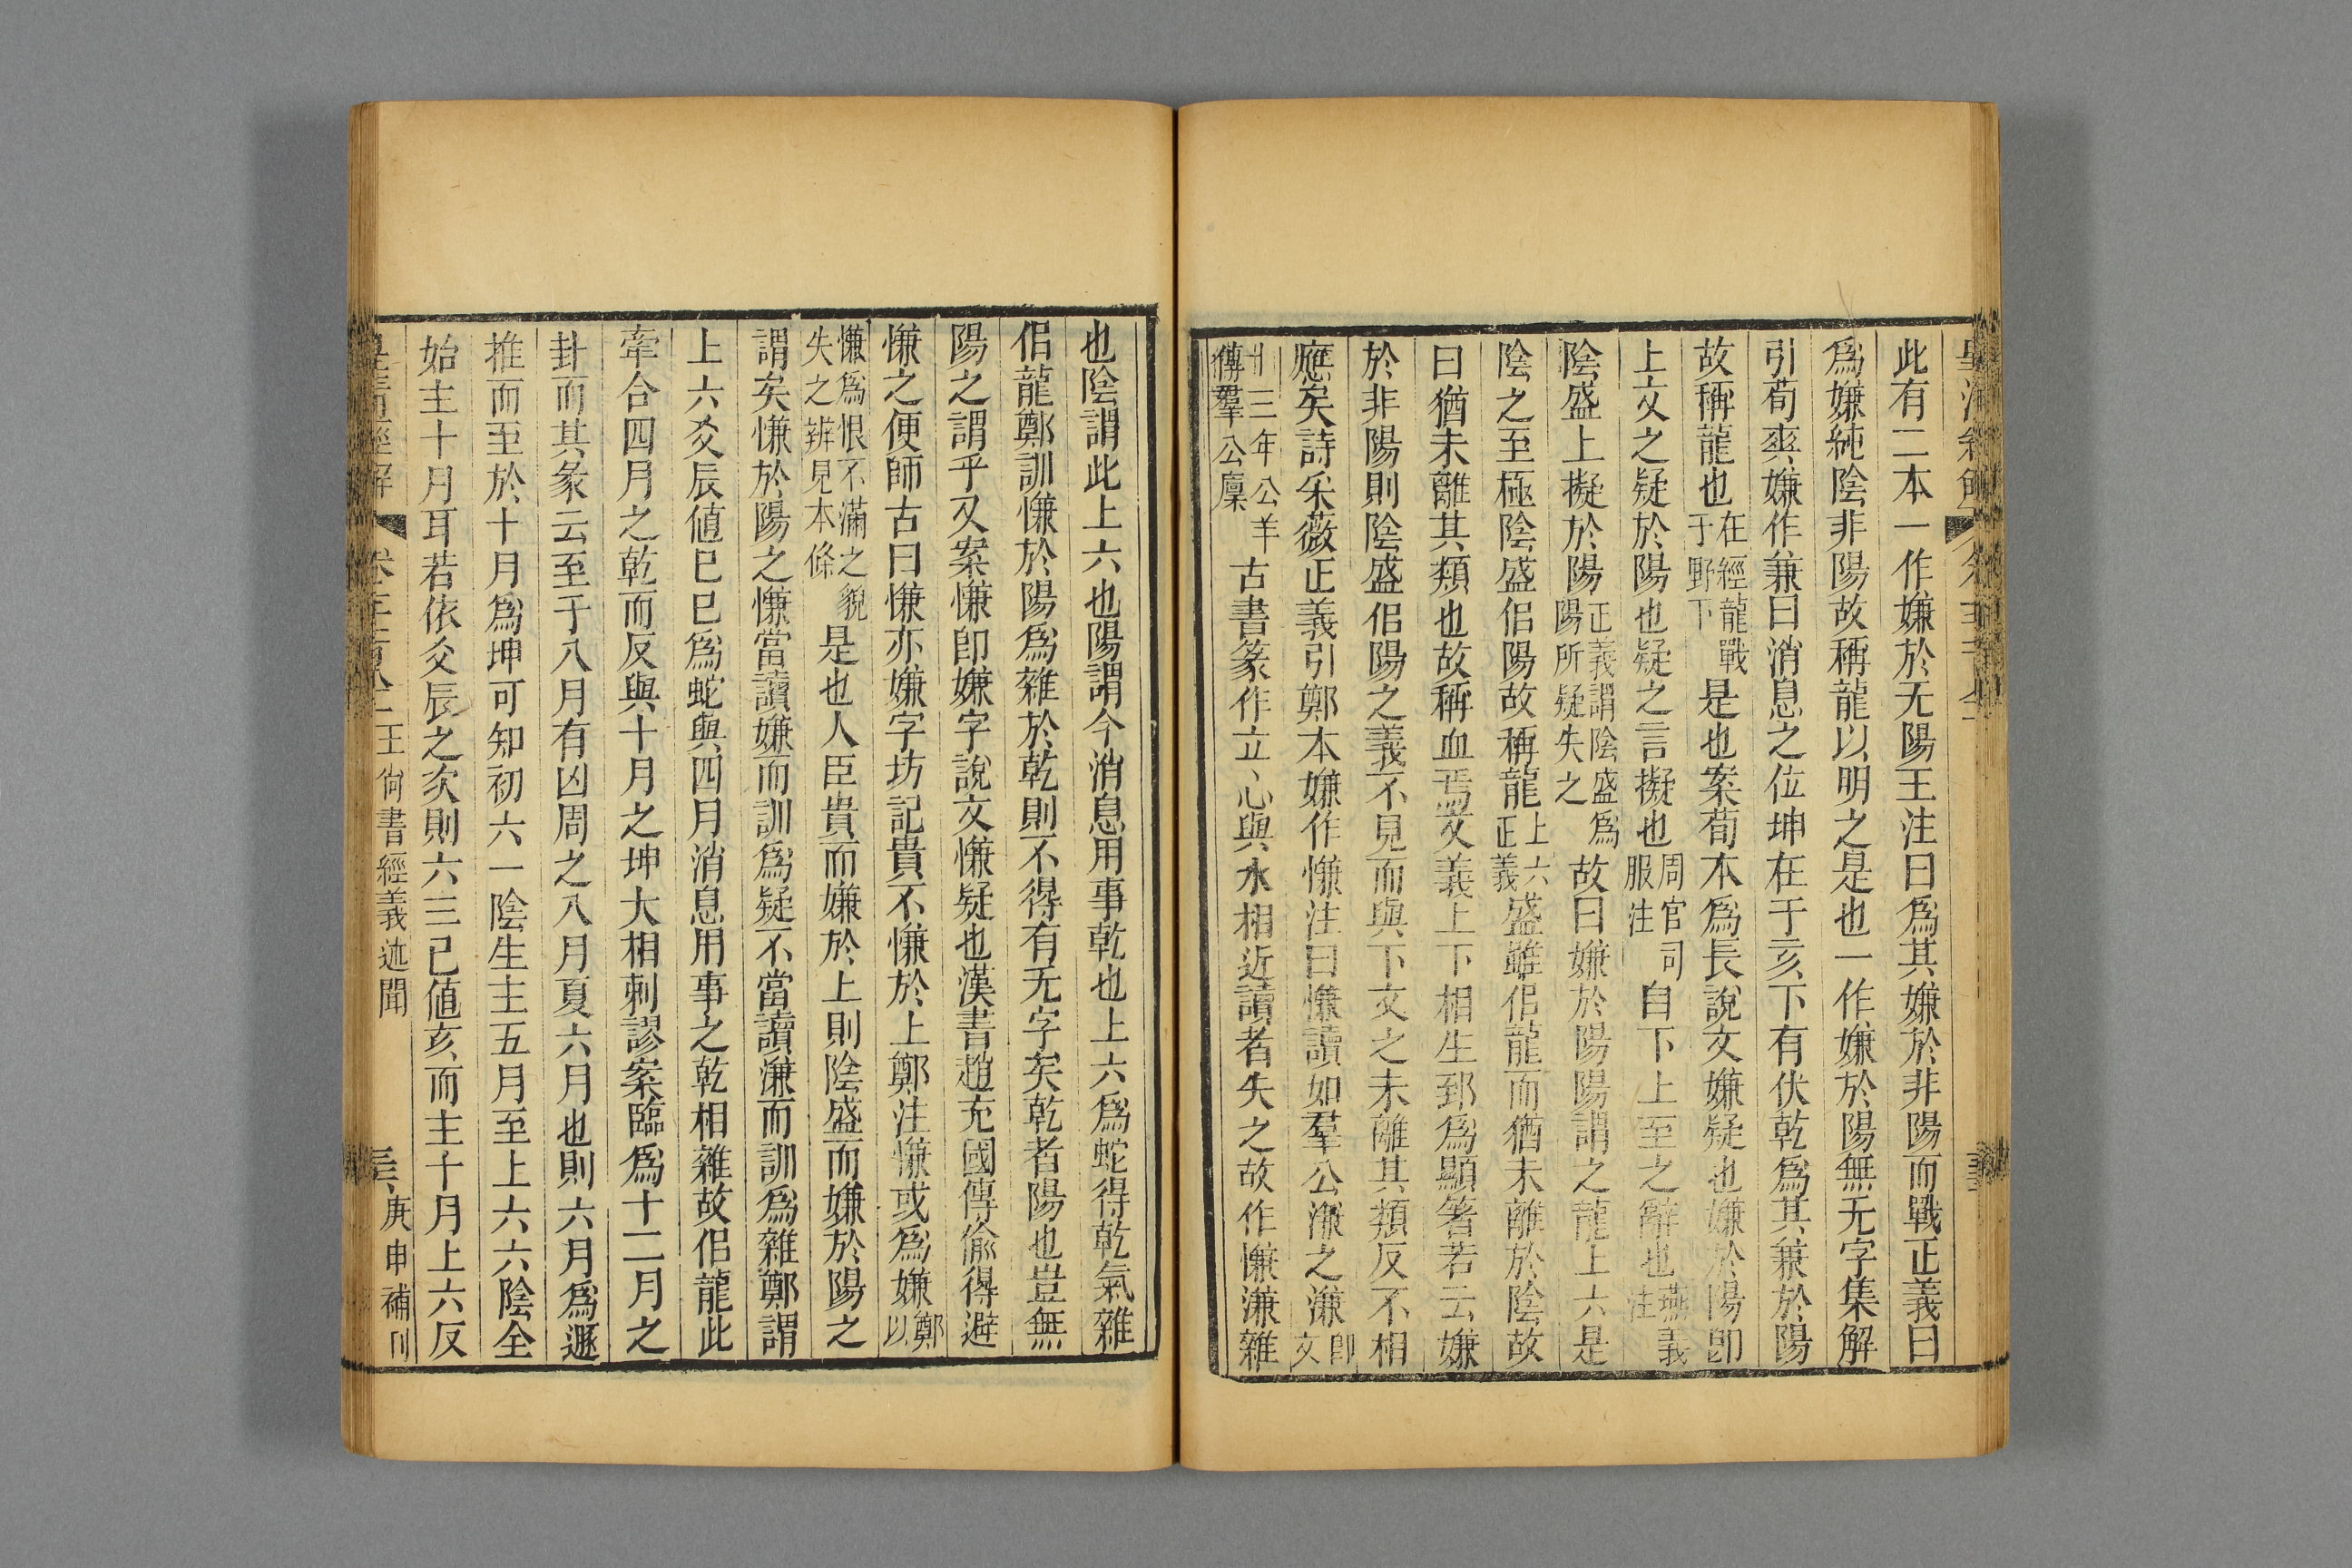 此有二本一作嫌於无陽王注曰爲其嫌於非陽而戰正義曰
爲嫌純陰非陽故稱龍以明之是也一作嫌於陽無无字集解
引荀爽嫌作兼曰消息之位坤在于亥下有伏乾爲其兼於陽
故稱龍也在經龍戰于野下是也案荀本爲長說文嫌疑也嫌於陽卽
上文之疑於陽也疑之言擬也周官司服注自下上至之辭也燕義注
陰盛上擬於陽正義謂陰盛爲陽所疑失之故曰嫌於陽陽謂之龍上六是
陰之至極陰盛佀陽故稱龍上六正義盛雖佀龍而猶未離於陰故
曰猶未離其類也故稱血焉文義上下相生郅爲顯箸若云嫌
於非陽則陰盛佀陽之義不見而與下文之未離其類反不相
應矣詩采薇正義引鄭本嫌作慊注曰慊讀如羣公濂之濂卽文
十三年公羊傳羣公廩古書篆作立心與水相近讀者失之故作慊濂雜
也陰謂此上六也陽謂今消息用事乾也上六爲蛇得乾氣雜
佀龍鄭訓慊於陽爲雜於乾則不得有无字矣乾者陽也豈無
陽之謂乎又案慊卽嫌字說文慊疑也漢書趙充國傳偷得避
慊之便師古曰慊亦嫌字坊記貴不慊於上鄭注慊或爲嫌鄭以
慊爲恨不滿之貌失之辨見本條是也人臣貴而嫌於上則陰盛而嫌於陽之
謂矣慊於陽之慊當讀嫌而訓爲疑不當讀濂而訓爲雜鄭謂
上六爻辰値巳巳爲蛇與四月消息用事之乾相雜故佀龍此
牽合四月之乾而反與十月之坤大相刺謬案臨爲十二月之
卦而其彖云至于八月有凶周之八月夏六月也則六月爲遯
推而至於十月爲坤可知初六一陰生主五月至上六六陰全
始主十月耳若依爻辰之次則六三已値亥而主十月上六反
皇淸經解 卷一千一百八十一 王尙書經義述聞 三 庚申補刊